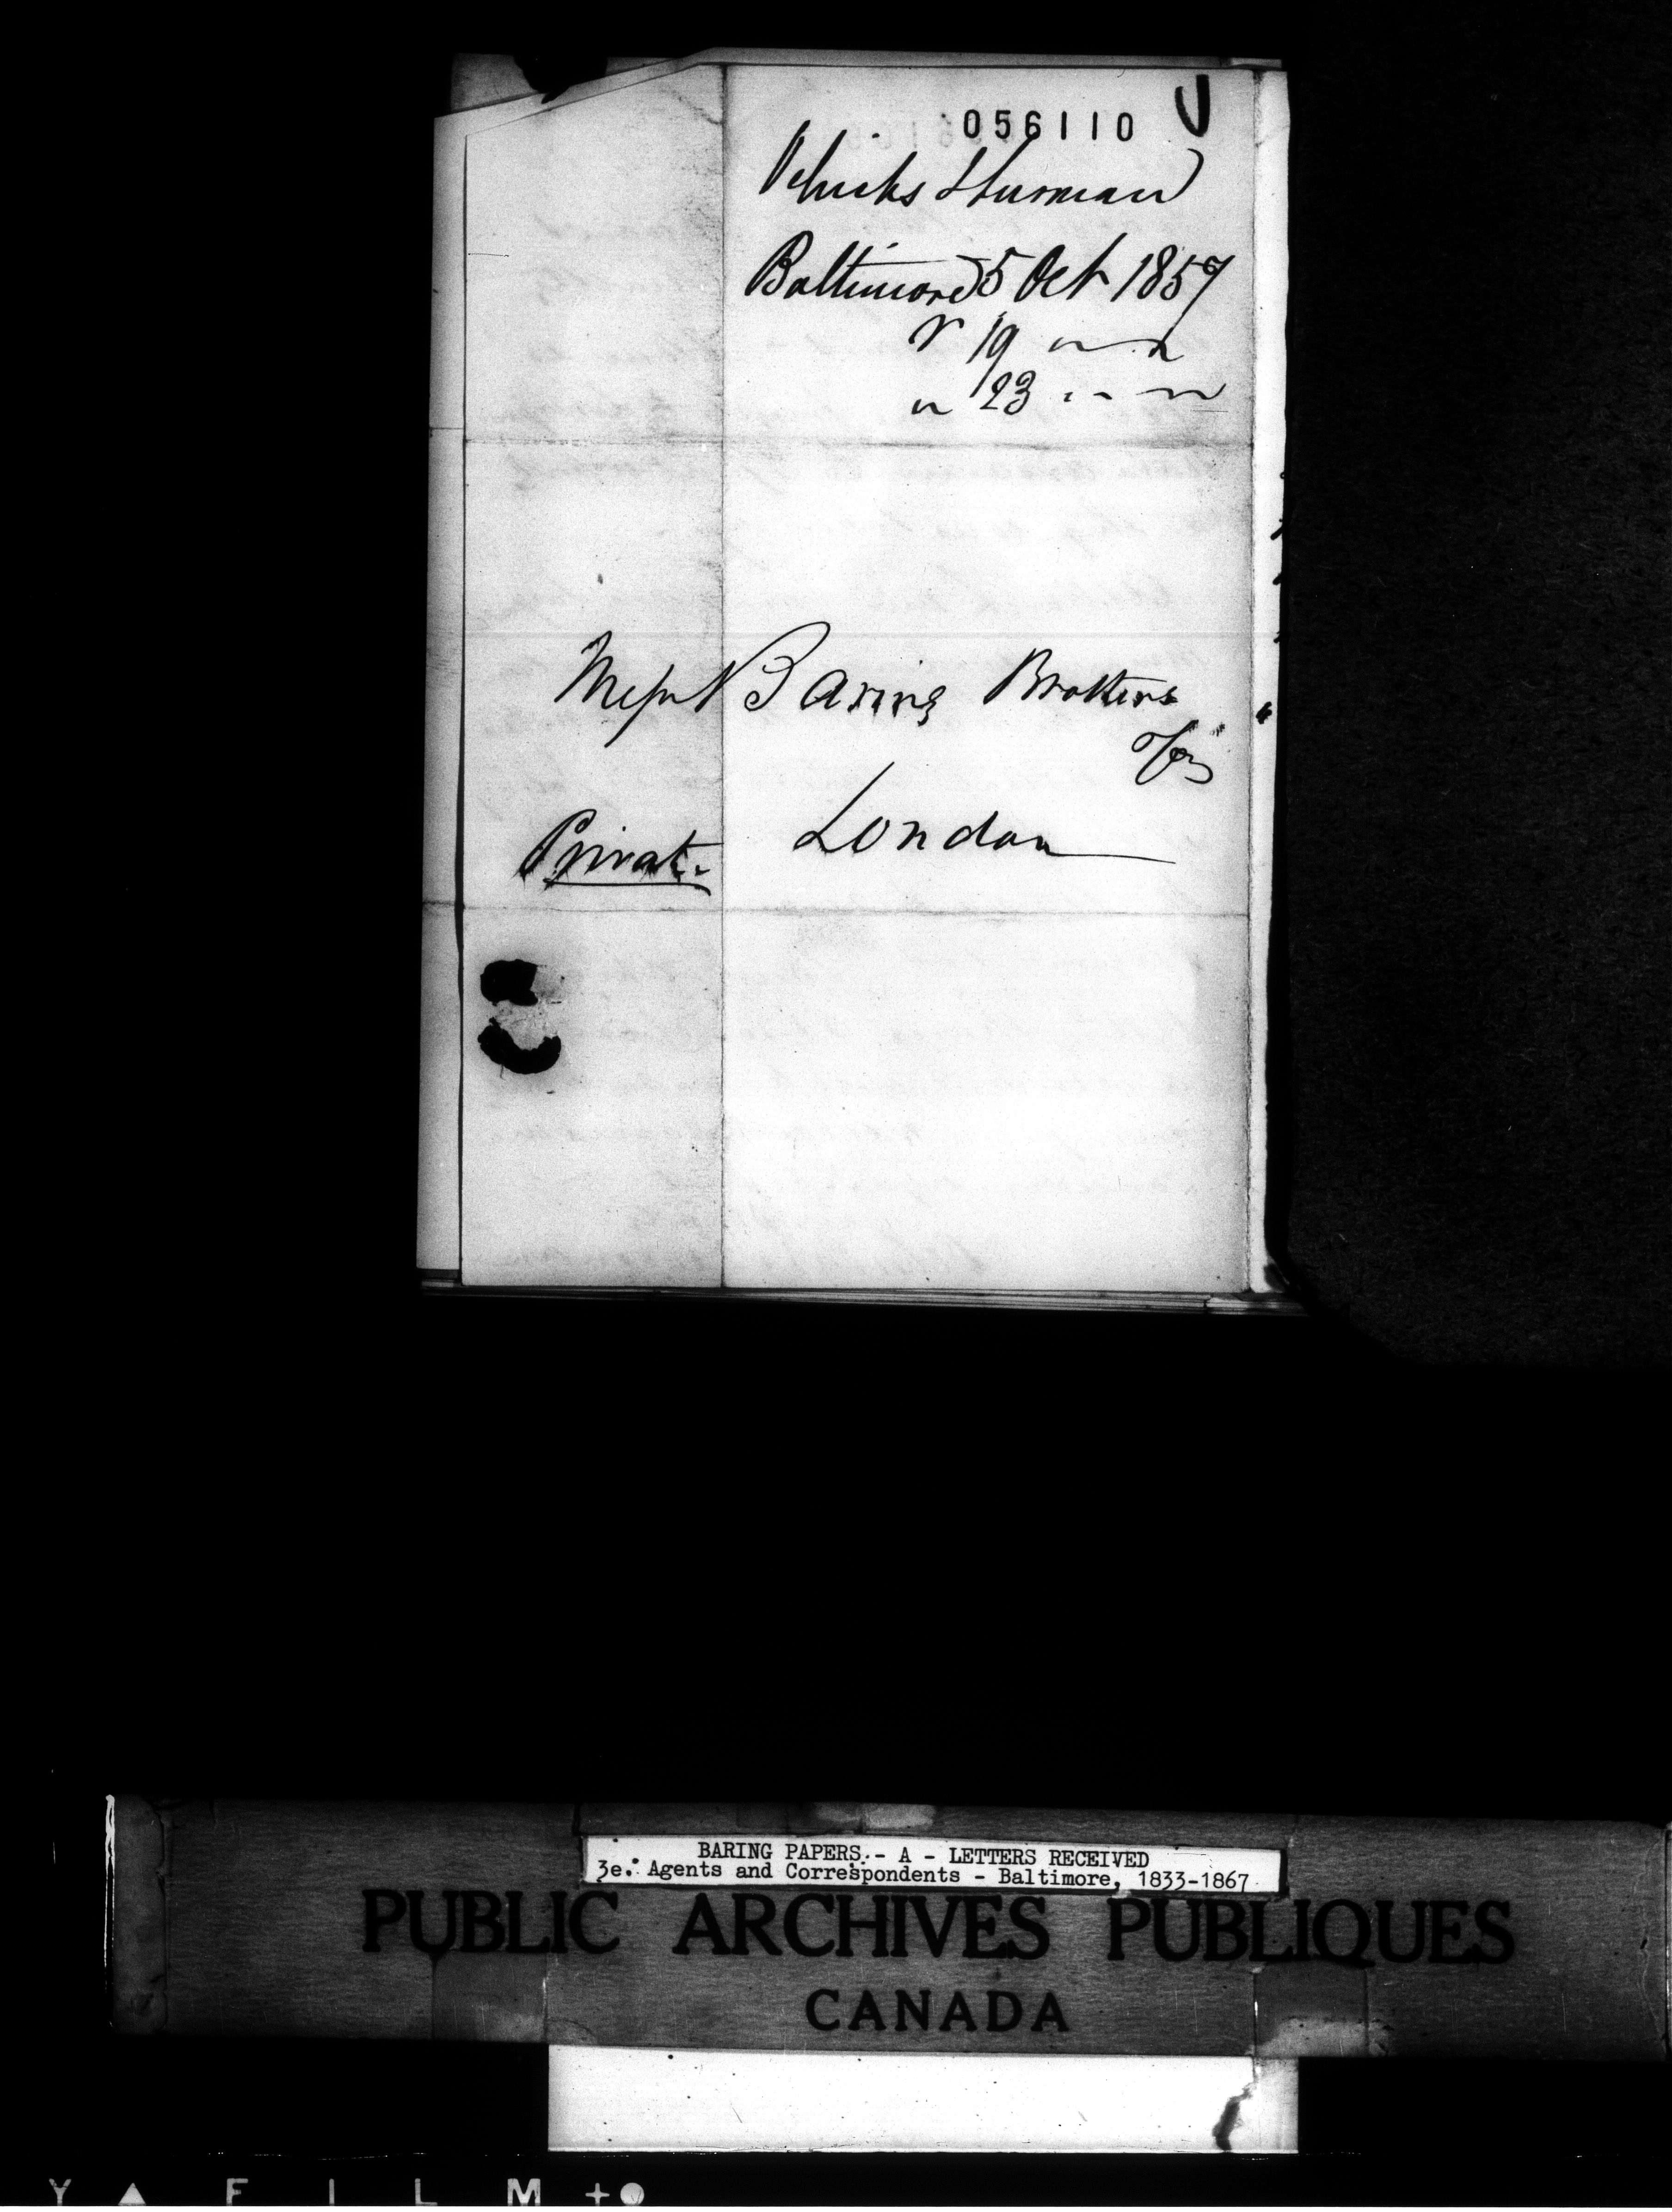 056110
Oelrichs & Lurman
Baltimore 5 Oct 1857
r 19
23
Messrs Baring Brothers
& Co
London
Private.
BARING PAPERS.- A - LETTERS RECEIVED
3e. Agents and Correspondents - Baltimore, 1833-1867
PUBLIC ARCHIVES PUBLIQUES
CANADA
Y ▲ F I L M +